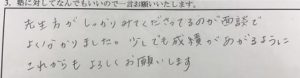 3. 塾に対してなんでもいいので一言お願いいたします。
先生方がしっかりみてくださってるのが面談で
よく分かりました。少しでも成績があがるように
これからもよろしくお願いします